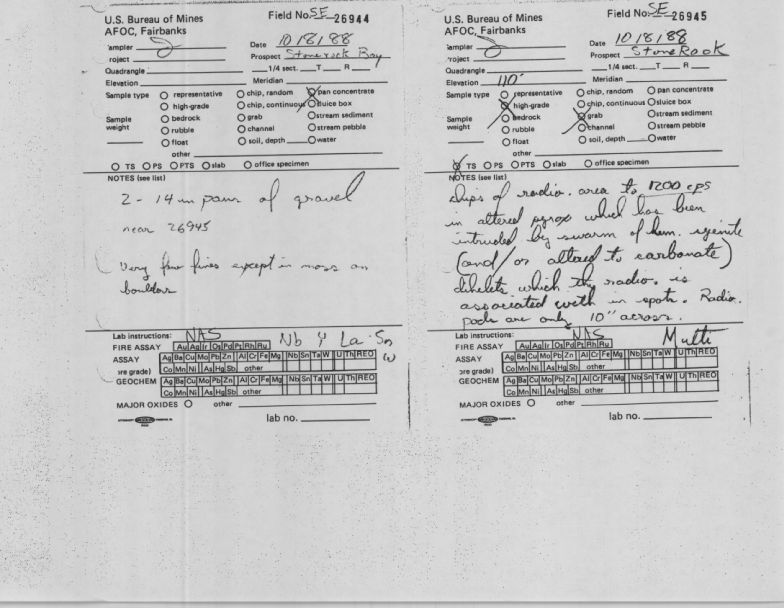 U.S. Bureau of Mines
AFOC, Fairbanks
Field No. SE 26944
ampler
Date 10/8/88
roject
Prospect Stonerock Bay
Quadrangle
1/4 sect. T R
Elevation
Meridian
Sample type
representative
chip, random
pan concentrate
high-grade
chip, continuous
sluice box
Sample weight
bedrock
grab
stream sediment
rubble
channel
stream pebble
float
soil, depth
water
other
TS PS PTS slab office specimen
NOTES (see list)
2 - 14 in pans of gravel
near 26945
Very few fines except in moss on
boulders
Lab instructions: NAS
Nb Y La Sn
W
FIRE ASSAY Au Ag Ir Os Pd Pt Rh Ru
ASSAY Ag Ba Cu Mo Pb Zn Al Cr Fe Mg Nb Sn Ta W U Th REO
ore grade) Co Mn Ni As Hg Sb other
GEOCHEM Ag Ba Cu Mo Pb Zn Al Cr Fe Mg Nb Sn Ta W U Th REO
Co Mn Ni As Hg Sb other
MAJOR OXIDES other
lab no.
U.S. Bureau of Mines
AFOC, Fairbanks
Field No. SE 26945
ampler
Date 10/8/88
roject
Prospect StoneRock
Quadrangle
1/4 sect. T R
Elevation 110'
Meridian
Sample type
representative
chip, random
pan concentrate
high-grade
chip, continuous
sluice box
Sample weight
bedrock
grab
stream sediment
rubble
channel
stream pebble
float
soil, depth
water
other
TS PS PTS slab office specimen
NOTES (see list)
chips of radio. area to 1200 cps
in altered pyrox which has been
intruded by swarm of hem. syenite
(and/or altered to carbonate)
dikelets which the radio. is
associated with in spots. Radio.
pods are only 10" across.
Lab instructions: NAS
Multi
FIRE ASSAY Au Ag Ir Os Pd Pt Rh Ru
ASSAY Ag Ba Cu Mo Pb Zn Al Cr Fe Mg Nb Sn Ta W U Th REO
ore grade) Co Mn Ni As Hg Sb other
GEOCHEM Ag Ba Cu Mo Pb Zn Al Cr Fe Mg Nb Sn Ta W U Th REO
Co Mn Ni As Hg Sb other
MAJOR OXIDES other
lab no.